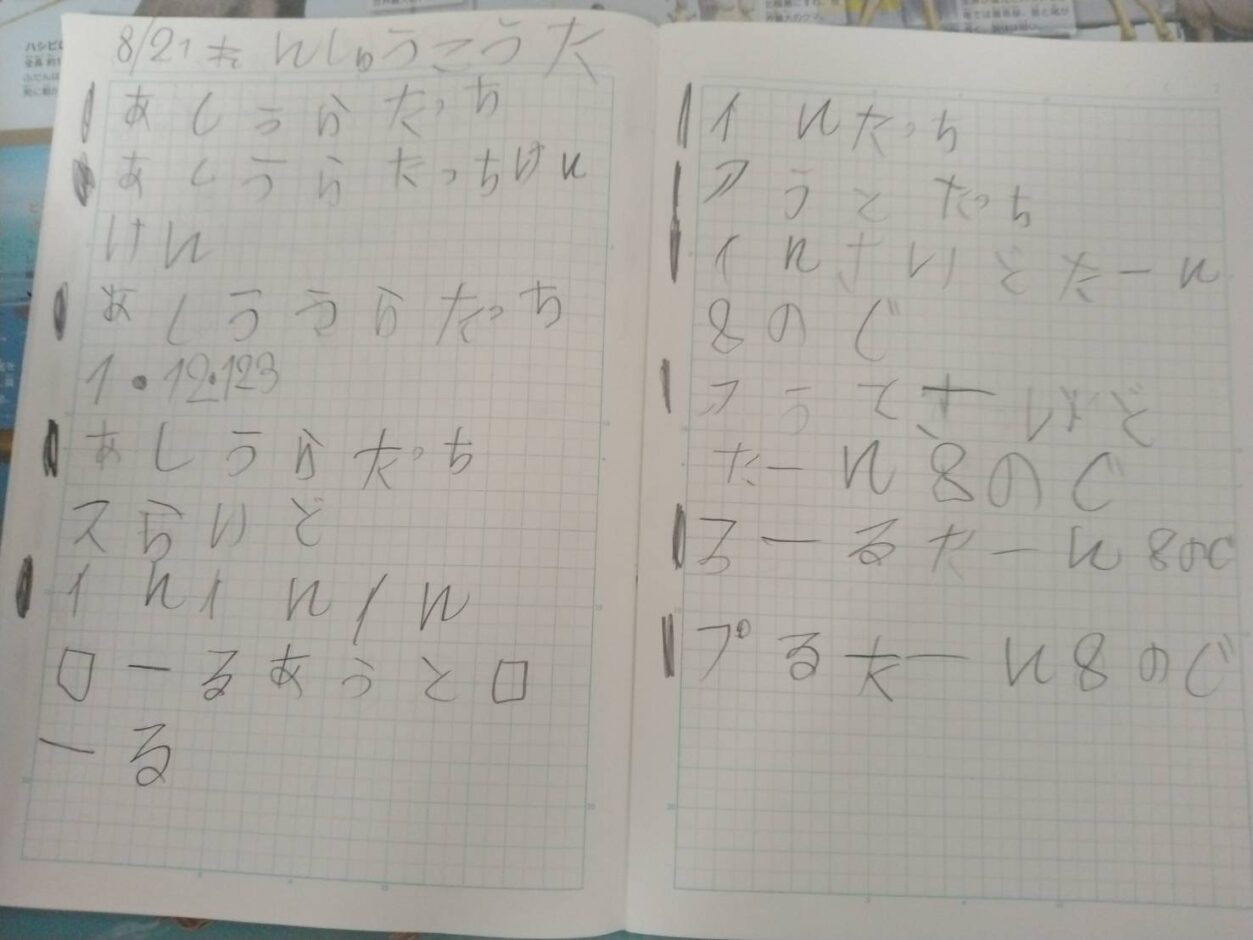 8/21 れんしゅうこうた
あしうらたっち
あしうらたっちけん
けん
あしうううらたっち
1・12・123
あしうらたっち
スらいど
インインイン
ロールあうとロ
ーる
インたっち
アうとたっち
インさいどたーん
8のじ
アうとさいど
たーん8のじ
るーるたーん8のじ
プるたーん8のじ